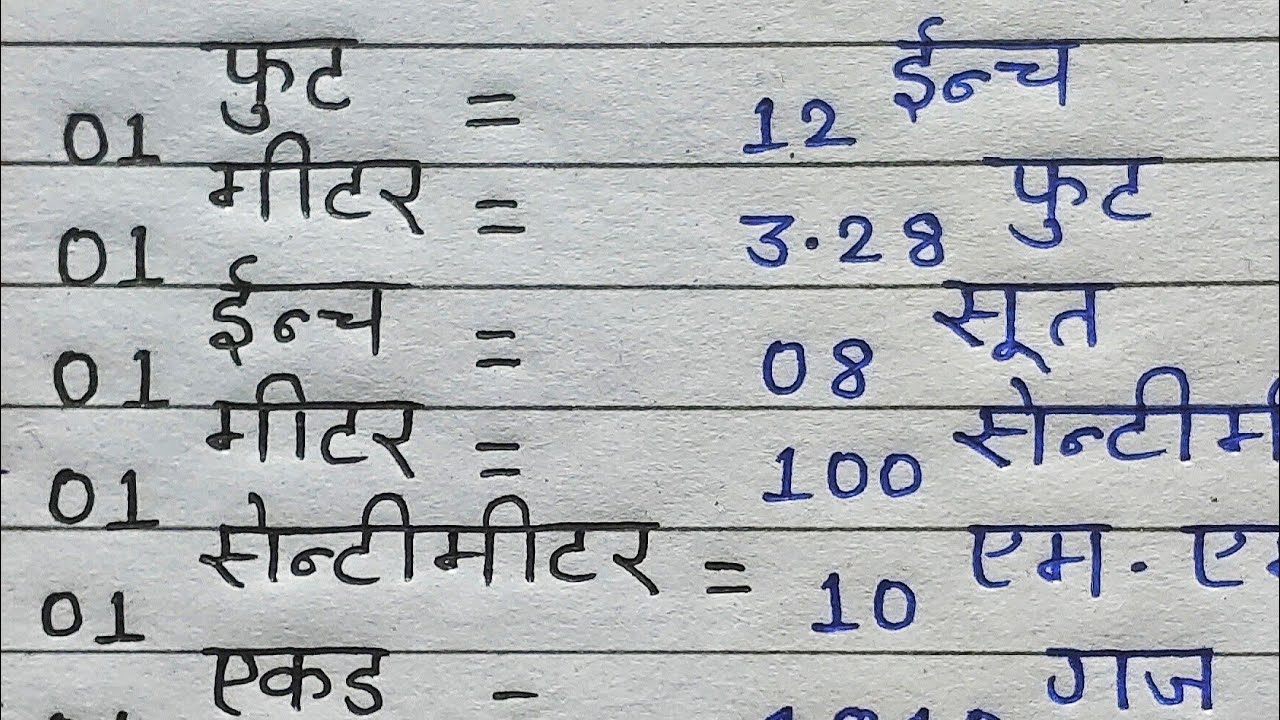 01 फुट = 12 ईन्च
01 मीटर = 3.28 फुट
01 ईन्च = 08 सूत
01 मीटर = 100
01 सेन्टीमीटर = 10 एम.
एकड = गज